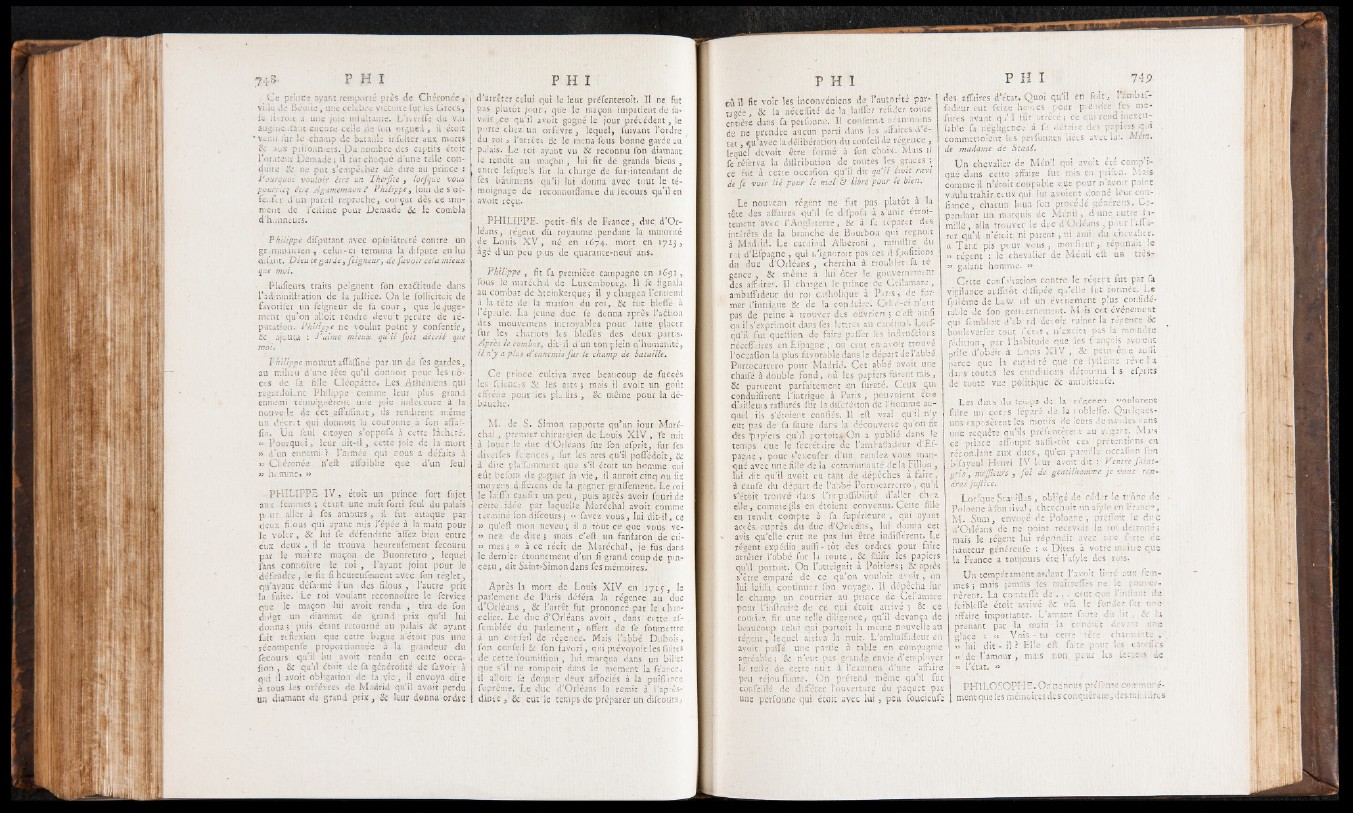 748 PHI PHI
Ce prince ayant remporté près de Chéronée,
ville de Béotie, une célèbre victoire sur les Grecs,
se livroit à une joie insultante. L'ivresse du vin
augmentant encore celle de son orgueil, il étoit
venu sur le champ de bataille insulter aux morts
& aux prisonniers. Du nombre des captifs étoit
l'orateur Demade; il fut choqué d'une telle con-
duite & ne put s'empêcher de dire au prince :
Pourquoi vouloir être un Thersite, lorsque vous
pourriez être Agamemnon ? Philippe, loin de s'of-
fenser d'un pareil reproche, conçut dès ce mo-
ment de l'estime pour Demade & le combla
d'honneurs.
Philippe disputant avec opiniâtreté contre un
grammairien, celui-ci termina la dispute en lui
disant. Dieu te garde, seigneur, de savoir cela mieux
que moi.
Plusieurs traits peignent son exactitude dans
l'administration de la justice. On le sollicitoit de
favoriser un seigneur de sa cour, que le juge-
ment qu'on alloit rendre devoit perdre de ré-
putation. Philippe ne voulut point y consentir,
& ajouta : J'aime mieux qu'il soit décrié que
moi.
Philippe mourut assassiné par un de ses gardes,
au milieu d'une fête qu'il donnoit pour les nô-
ces de sa fille Cléopâtre. Les Athéniens qui
regardoient Philippe comme leur plus grand
ennemi témoignèrent une joie indécente à la
nouvelle de cet assassinat, ils rendirent même
un décret qui donnoit la couronne à son assas-
sin. Un seul citoyen s'opposa à cette lâcheté.
» Pourquoi, leur dit-il, cette joie de la mort
» d'un ennemi ? l'armée qui nous a défaits à
» Chéronée n'est affoiblie que d'un seul
» homme. »
PHILIPPE IV, étoit un prince fort sujet
aux femmes; étant une nuit sorti seul du palais
pour aller à ses amours, il fut attaqué par
deux filous qui ayant mis l'épée à la main pour
le voler, & lui se défendant assez bien entre
eux deux, il se trouva heureusement secouru
par le maître maçon de Buonretiro, lequel
sans connoître le roi, l'ayant joint pour le
défendre, le fit si heureusement avec son reglet,
qu'ayant désarmé l'un des filous, l'autre prit
la fuite. Le roi voulant reconnoître le service
que le maçon lui avoit rendu, tira de son
doigt un diamant de grand prix qu'il lui
donna; puis étant retourné au palais & ayant
fait réflexion que cette bague n'étoit pas une
récompense proportionnée à la grandeur du
secours qu'il lui avoit rendu en cette occa-
sion, & qu'il étoit de sa générosité de savoir à
qui il avoit obligation de sa vie, il envoya dire
à tous les orfèvres de Madrid qu'il avoit perdu
un diamant de grand prix, & leur donna ordre
d'arrêter celui qui le leur présenteroit. Il ne fut
pas plutôt jour, que le maçon impatient de sa-
voir ce qu'il avoit gagné le jour précédent, le
porte chez un orfèvre, lequel, suivant l'ordre
du roi, l'arrêta & le mena sous bonne garde au
palais. Le roi ayant vu & reconnu son diamant
le rendit au maçon, lui fit de grands biens,
entre lesquels fut la charge de sur-intendant de
ses bâtimens qu'il lui donna avec tout le té-
moignage de reconnoissance du secours qu'il en
avoit reçu.
PHILIPPE. petit-fils de France, duc d'Or-
léans, régent du royaume pendant la minorité
de Louis XV, né en 1674. mort en 1723,
âgé d'un peu plus de quarante-neuf ans.
Philippe, fit sa première campagne en 1691,
sous le maréchal de Luxembourg. Il se signala
au combat de Steinkerque; il y chargea l'ennemi
à la tête de la maison du roi, & fut blessé à
l'épaule. Le jeune duc se donna après l'action
des mouvemens incroyables pour faire placer
sur les chariots les blessés des deux partis.
Après le combat, dit-il d'un ton plein d'humanité,
il n'y a plus d'ennemis sur le champ de bataille.
Ce prince cultiva avec beaucoup de succès
les sciences & les arts; mais il avoit un goût
effréné pour les plaisirs, & même pour la dé-
bauche.
M. de S. Simon rapporte qu'un jour Maré-
chal, premier chirurgien de Louis XIV, se mit
à louer le duc d'Orléans sur son esprit, sur ses
diverses sciences, sur les arts qu'il possédoit, &
à dire plaisamment que s'il étoit un homme qui
eût besoin de gagner sa vie, il auroit cinq ou six
moyens différens de la gagner grassement. Le roi
le laissa causer un peu, puis après avoir souri de
cette idée par laquelle Maréchal avoit comme
terminé son discours; « savez vous, lui dit-il, ce
» qu'est mon neveu; il a tout ce que vous ve-
» nez de dire; mais c'est un fanfaron de cri-
» mes; » à ce récit de Maréchal, je fus dans
le dernier étonnement d'un si grand coup de pin-
ceau, dit Saint-Simon dans ses mémoires.
Après la mort de Louis XIV en 1715, le
parlement de Paris déféra la régence au duc
d'Orléans, & l'arrêt fut prononcé par le chan-
celier. Le duc d'Orléans avoit, dans cette as-
semblée du parlement, offert de se soumettre
à un conseil de régence. Mais l'abbé Dubois,
son conseil & son favori, qui prévoyoit les suites
de cette soumission, lui marqua dans un billet
que s'il ne rompoit dans le moment la séance,
il alloit se donner deux associés à la puissance
suprême. Le duc d'Orléans la remit à l'après-
dînée, & eut le temps de préparer un discours,
PHI PHI 749
où il fit voir les inconvéniens de l'autorité par-
tagée, & la nécessité de la laisser résider toute
entière dans sa personne. Il consentit néanmoins
de ne prendre aucun parti dans les affaires d'é-
tat, qu'avec la délibération du conseil de régence,
lequel devoit être formé à son choix. Mais il
se réserva la distribution de toutes les graces :
ce fut à cette occasion qu'il dit qu'il étoit ravi
de se voir lié pour le mal & libre pour le bien.
Le nouveau régent ne fut pas plutôt à la
tête des affaires qu'il se disposa à s'unir étroi-
tement avec l'Angleterre, & à se séparer des
intérêts de la branche de Bourbon qui régnoit
à Madrid. Le cardinal Alberoni, ministre du
roi d'Espagne, qui n'ignoroit pas ces dispositions
du duc d'Orléans, chercha à troubler sa ré-
gence, & même à lui ôter le gouvernement
des affaires. Il chargea le prince de Cellamare,
ambassadeur du roi catholique à Paris, de for-
mer l'intrigue & de la conduire. Celui-ci n'eut
pas de peine à trouver des ouvriers; c'est ainsi
qu'il s'exprimoit dans ses lettres au cardinal. Lors-
qu'il fut question de faire passer les instructions
nécessaires en Espagne, on crut en avoir trouvé
l'occasion la plus favorable dans le départ de l'abbé
Portocarrero pour Madrid. Cet abbé avoit une
chaise à double fond, où les papiers furent mis,
& parurent parfaitement en sureté. Ceux qui
conduisirent l'intrigue à Paris, pouvoient être
d'ailleurs rassurés sur la discrétion de l'homme au-
quel ils s'étoient confiés. Il est vrai qu'il n'y
eut pas de sa faute dans la découverte qu'on fit
des papiers qu'il portoit. On a publié dans le
temps que le secrétaire de l'ambassadeur d'Es-
pagne, pour s'excuser d'un rendez vous man-
qué avec une fille de la communauté de la Fillon,
lui dit qu'il avoit eu tant de dépêches à faire,
à cause du départ de l'abbé Portocarrero, qu'il
s'étoit trouvé dans l'impossibilité d'aller chez
elle, comme ils en étoient convenus. Cette fille
en rendit compte à sa supérieure, qui ayant
accès auprès du duc d'Orléans, lui donna cet
avis qu'elle crut ne pas lui être indifférent. Le
régent expédia aussi-tôt des ordres pour faire
arrêter l'abbé sur la route, & saisir les papiers
qu'il portoit. On l'atteignit à Poitiers; & après
s'être emparé de ce qu'on vouloit avoir, on
lui laissa continuer son voyage. Il dépêcha sur
le champ un courrier au prince de Cellamare
pour l'instruire de ce qui étoit arrivé; & ce
courier fit une telle diligence, qu'il devança de
beaucoup celui qui portoit la même nouvelle au
régent, lequel arriva la nuit. L'ambassadeur en
avoit passé une partie à table en compagnie
agréable; & n'eut pas grande envie d'employer
le reste de cette nuit à l'examen d'une affaire
peu réjouissante. On prétend même qu'il fut
conseillé de différer l'ouverture du paquet par
une personne qui étoit avec lui, peu soucieuse
des affaires d'état. Quoi qu'il en soit, l'ambas-
sadeur eut seize heures pour prendre ses me-
sures avant qu'il fût arrêté; ce qui rend inexcu-
sable sa négligence à se défaire des papiers qui
commettoient les personnes liées avec lui. Mém.
de madame de Staal.
Un chevalier de Ménil qui avoit été compli-
qué dans cette affaire fut mis en prison. Mais
comme il n'étoit coupable que pour n'avoir point
voulu trahir ceux qui lui avoient donné leur con-
fiance, chacun loua son procédé généreux. Ce-
pendant un marquis de Ménil, d'une autre fa-
mille, alla trouver le duc d'Orléans, pour l'assu-
rer qu'il n'étoit ni parent, ni ami du chevalier.
« Tant pis pour vous, monsieur, répondit le
» régent : le chevalier de Ménil est un très-
» galant homme. »
Cette conspiration contre le régent fut par sa
vigilance aussitôt dissipée qu'elle fut formée. Le
système de Law est un évènement plus considé-
rable de son gouvernement. Mais cet événement
qui sembloit d'abord devoir ruiner la régence &
bouleverser tout l'état, n'excita pas la moindre
sédition, par l'habitude que les françois avoient
prise d'obéir à Louis XIV, & peut-être aussi
parce que la cupidité que ce système réveilla
dans toutes les conditions détourna les esprits
de toute vue politique & ambitieuse.
Les ducs du temps de la régence voulurent
faire un corps séparé de la noblesse. Quelques-
uns exposèrent les motifs de leurs demandes dans
une requête qu'ils présentèrent au régent. Mais
ce prince assoupit aussi-tôt ces prétentions en
répondant aux ducs, qu'en pareille occasion son
bisayeul Henri IV leur avoit dit : Ventre saint-
gris, messieurs, foi de gentilhomme je vous ren-
drai justice.
Lorsque Stanislas, obligé de céder le trône de
Pologne à son rival, cherchoit un asyle en France,
M. Sum, envoyé de Pologne, pressoit le duc
d'Orléans de ne point recevoir le roi détrôné;
mais le régent lui répondit avec une sorte de
hauteur généreuse : « Dites à votre maître que
la France a toujours été l'asyle des rois.
Un tempérament ardent l'avoit livré aux fem-
mes; mais jamais ses maîtresses ne le gouver-
nèrent. La comtesse de ... crut que l'instant de
foiblesse étoit arrivé & osa le sonder sur une
affaire importante. L'amant sorti du lit, & la
prenant par la main la conduit devant une
glace : « Vois-tu cette tête charmante,
» lui dit-il? Elle est faite pour les caresses
» de l'amour, mais non pour les secrets de
» l'état. »
PHILOSOPHE. On ne nous présente communé-
ment que les mémoires des conquérans, des ministres